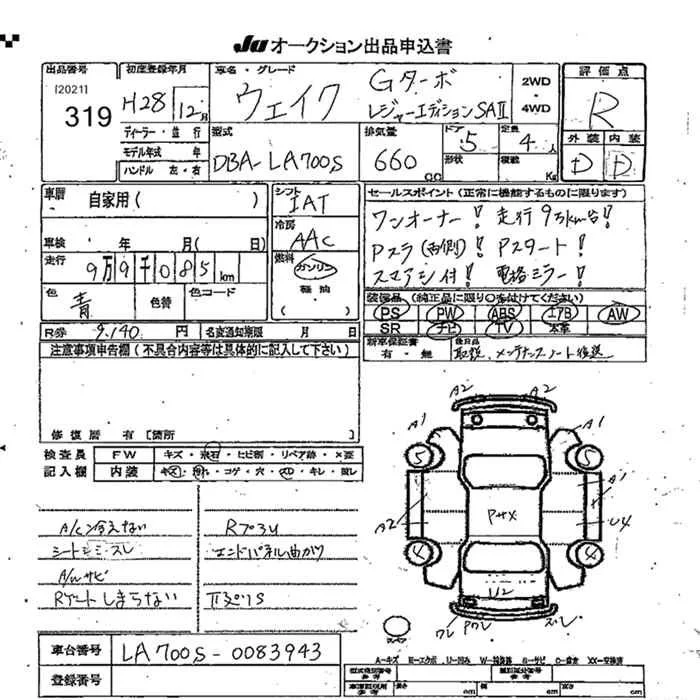 JU オークション出品申込書
出品番号
[2021]
319
初度登録年月
H28 12月
ディーラー・並行
モデル年式 年
ハンドル 左・右
車名・グレード
ウェイク
Gターボ
レジャーエディションSAⅡ
2WD
・
4WD
評価点
R
外装 内装
D D
型式
DBA-LA700S
排気量
660 CC
ドア 5
形状
定員 4人
積載 Kg
車歴 自家用( )
車検 年 月( 日)
走行 9万9千085km
色 青 色替 色コード
シフト
IAT
冷房
AAC
燃料
ガソリン
軽油
( )
セールスポイント(正常に機能するものに限ります)
ワンオーナー! 走行9万km台!
Pスラ(両側)! Pスタート!
スマアシ付! 電格ミラー!
装備品(純正品に限り○を付けてください)
PS PW ABS エアB AW
SR ナビ TV 本革
R券 9,140 円 名変通知期限 月 日
新車保証書
有・無
後日品
取説、メンテナンスノート後送
注意事項申告欄(不具合内容等は具体的に記入して下さい)
修復歴 有 〔箇所
検査員
記入欄
FW キズ・飛石・ヒビ割・リペア跡・×要
内装 キズ・汚れ・コゲ・穴・スレ・キレ・臭い
A/C冷えない
シートシミ・スレ
A/Wサビ
Rゲートしまらない
RフヨU
エンドパネル曲がり
A2 A2
A1 A1
5 5
A1
A2
PサX
U4
4 4
U2
ワレ Pワレ ズレ
スペア
車台番号 LA700S-0083943
登録番号
A=キズ E=エクボ U=凹み W=補修跡 S=サビ C=腐食 XX=交換済
型式指定番号
参考
類別区分番号
参考
車両寸法
参考
長さ cm 幅 cm 高さ cm